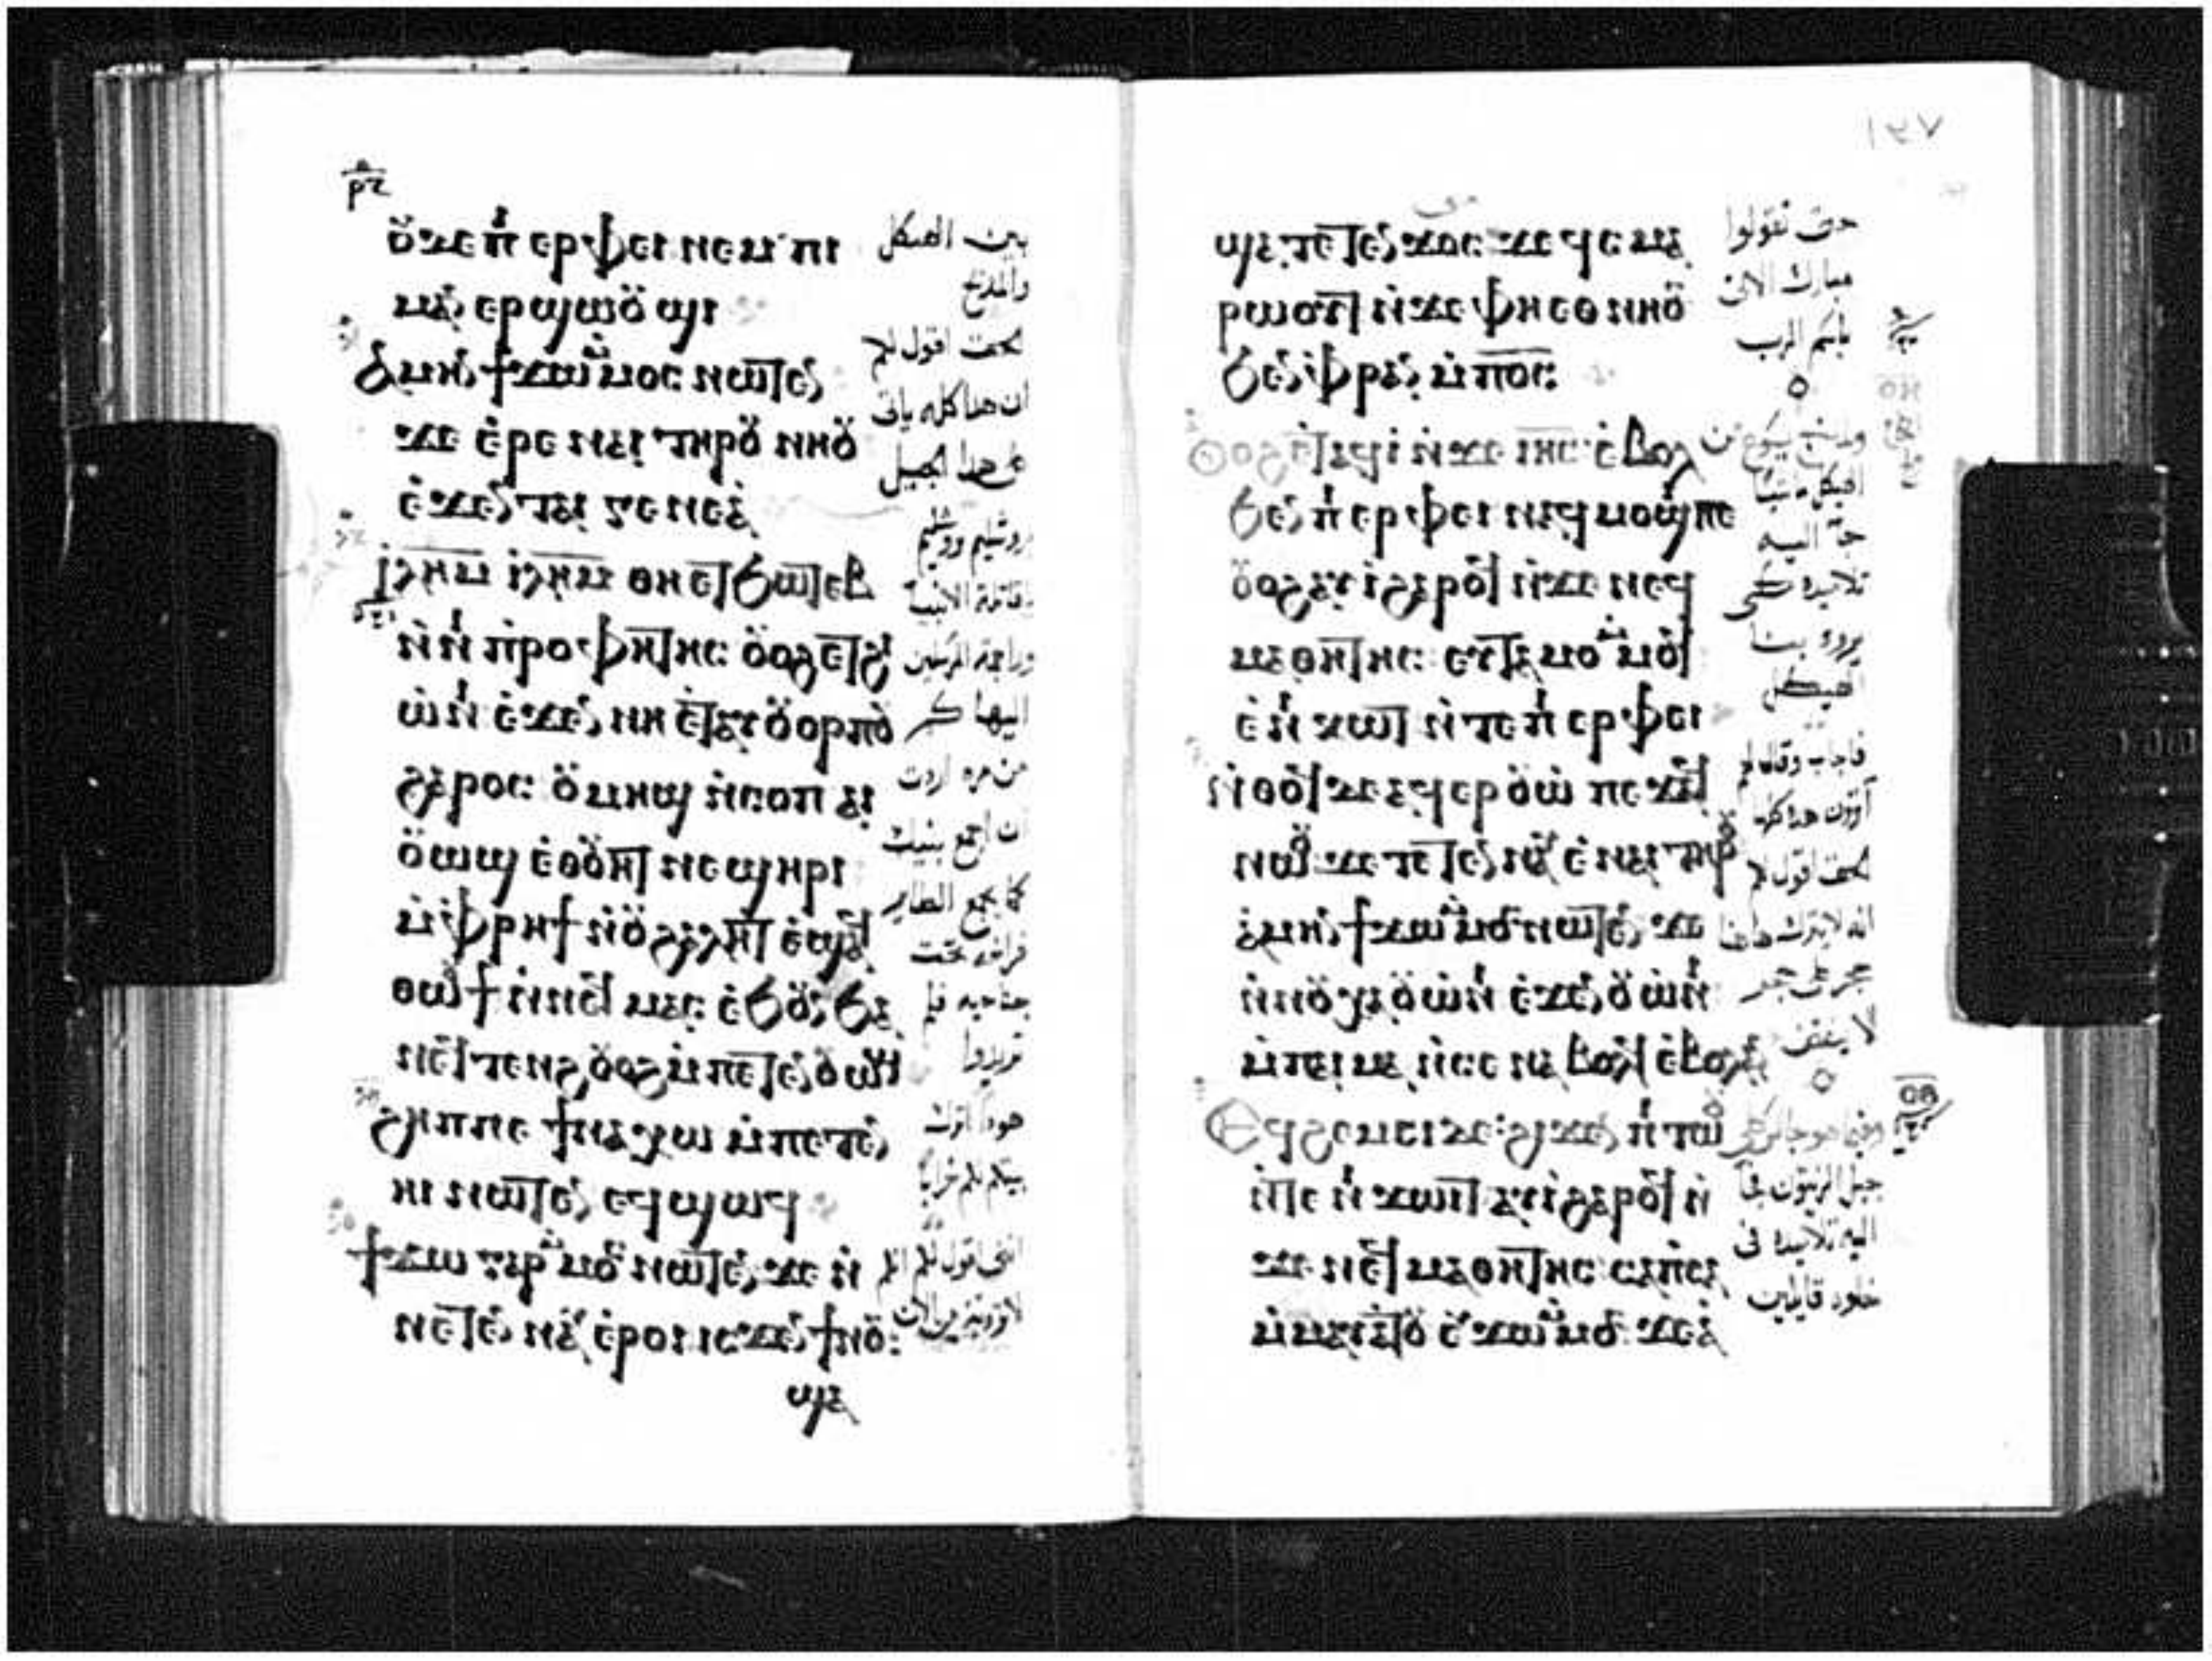 ⲣⲝ
ⲟⲩϫⲉ ⲡⲓⲉⲣⲫⲉⲓ ⲛⲉⲙ ⲡⲓ
ⲙⲁⲛⲉⲣϣⲱⲟⲩϣⲓ
ⲁⲙⲏⲛ ϯϫⲱ ⲙⲙⲟⲥ ⲛⲱⲧⲉⲛ
ϫⲉ ⲉⲣⲉ ⲛⲁⲓ ⲧⲏⲣⲟⲩ ⲛⲏⲟⲩ
ⲉϫⲉⲛ ⲧⲁⲓ ⲅⲉⲛⲉⲁ
ⲓⲗⲏⲙ ⲓⲗⲏⲙ ⲑⲏⲉⲧϧⲱⲧⲉⲃ
ⲛⲛⲓⲡⲣⲟⲫⲏⲧⲏⲥ ⲟⲩⲟϩ ⲉⲧϩⲓ
ⲱⲛⲓ ⲉϫⲉⲛ ⲛⲏ ⲉⲧⲁⲩⲟⲩⲟⲣⲡⲟⲩ
ϩⲁⲣⲟⲥ ⲟⲩⲙⲏϣ ⲛⲥⲟⲡ ⲁⲓ
ⲟⲩⲱϣ ⲉⲑⲟⲩⲉⲧ ⲛⲉϣⲏⲣⲓ
ⲙⲫⲣⲏϯ ⲛⲟⲩϩⲁⲗⲏⲧ ⲉϣⲁϥ
ⲑⲱⲟⲩϯ ⲛⲛⲉϥⲙⲁⲥ ⲉϧⲟⲩⲛ ϧⲁ
ⲛⲉϥⲧⲉⲛϩ ⲟⲩⲟϩ ⲙⲡⲉⲧⲉⲛⲟⲩⲱϣ
ϩⲏⲡⲡⲉ ϯⲛⲁⲭⲱ ⲙⲡⲉⲧⲉⲛ
ⲏⲓ ⲛⲱⲧⲉⲛ ⲉϥϣⲱϥ
ϯϫⲱ ⲅⲁⲣ ⲙⲙⲟⲥ ⲛⲱⲧⲉⲛ ϫⲉ ⲛ
ⲛⲉⲧⲉⲛⲛⲁⲩ ⲉⲣⲟⲓ ⲓⲥϫⲉⲛ ϯⲛⲟⲩ
ϣⲁ
بين الهيكل
والمذبح
الحق اقول لكم
ان هذا كله ياتي
على هذا الجيل
يروشليم يروشليم
يا قاتلة الانبيا
وراجمة المرسلين
اليها كم
من مرة اردت
ان اجمع بنيك
كما يجمع الطاير
فراخه تحت
جناحيه فلم
تريدوا
هوذا اترك
بيتكم لكم خرابا
انني اقول لكم انكم
لا ترونني من الان
١٥٧
ϣⲁⲧⲉⲧⲉⲛϫⲟⲥ ϫⲉ ϥⲥⲙⲁ
ⲣⲱⲟⲩⲧ ⲛϫⲉ ⲫⲏⲉⲑⲛⲏⲟⲩ
ϧⲉⲛ ⲫⲣⲁⲛ ⲙⲡⲟⲥ
ⲟⲩⲟϩ ⲉⲧⲁϥⲓ ⲛϫⲉ ⲓⲏⲥ ⲉⲃⲟⲗ
ϧⲉⲛ ⲡⲓⲉⲣⲫⲉⲓ ⲛⲁϥⲙⲟϣⲓ ⲡⲉ
ⲟⲩⲟϩ ⲁⲩⲓ ϩⲁⲣⲟϥ ⲛϫⲉ ⲛⲉϥ
ⲙⲁⲑⲏⲧⲏⲥ ⲉⲩⲧⲁⲙⲟ ⲙⲙⲟϥ
ⲉⲛⲓⲕⲱⲧ ⲛⲧⲉ ⲡⲓⲉⲣⲫⲉⲓ
ⲛⲑⲟϥ ϫⲉ ⲁϥⲉⲣⲟⲩⲱ ⲡⲉϫⲁϥ
ⲛⲱⲟⲩ ϫⲉ ⲧⲉⲧⲉⲛⲛⲁⲩ ⲉⲛⲁⲓ ⲧⲏⲣⲟⲩ
ⲁⲙⲏⲛ ϯϫⲱ ⲙⲙⲟⲥ ⲛⲱⲧⲉⲛ ϫⲉ
ⲛⲛⲟⲩⲭⲁ ⲟⲩⲱⲛⲓ ⲉϫⲉⲛ ⲟⲩⲱⲛⲓ
ⲙⲡⲁⲓⲙⲁ ⲛⲥⲉⲛⲁⲃⲟⲗϥ ⲉⲃⲟⲗ ⲁⲛ
ⲉϥϩⲉⲙⲥⲓ ⲇⲉ ϩⲓϫⲉⲛ ⲡⲓⲧⲱⲟⲩ
ⲛⲧⲉ ⲛⲓϫⲱⲓⲧ ⲁⲩⲓ ϩⲁⲣⲟϥ ⲛ
ϫⲉ ⲛⲉϥⲙⲁⲑⲏⲧⲏⲥ ⲥⲁⲡⲥⲁ
ⲙⲙⲁⲩⲁⲧⲟⲩ ⲉⲩϫⲱ ⲙⲙⲟⲥ ϫⲉ ⲁ
حتى تقولوا
مبارك الاتي
باسم الرب
يسوع من
الهيكل
جا اليه
تلاميذه لكي
يروه بنا
الهيكل
فاجاب وقال لهم
اترون هذا كله
الحق اقول لكم
انه لا يترك هاهنا
حجر على حجر
لا ينقض
وفيما هو جالس على
جبل الزيتون جا
اليه تلاميذه في
خلوة قايلين